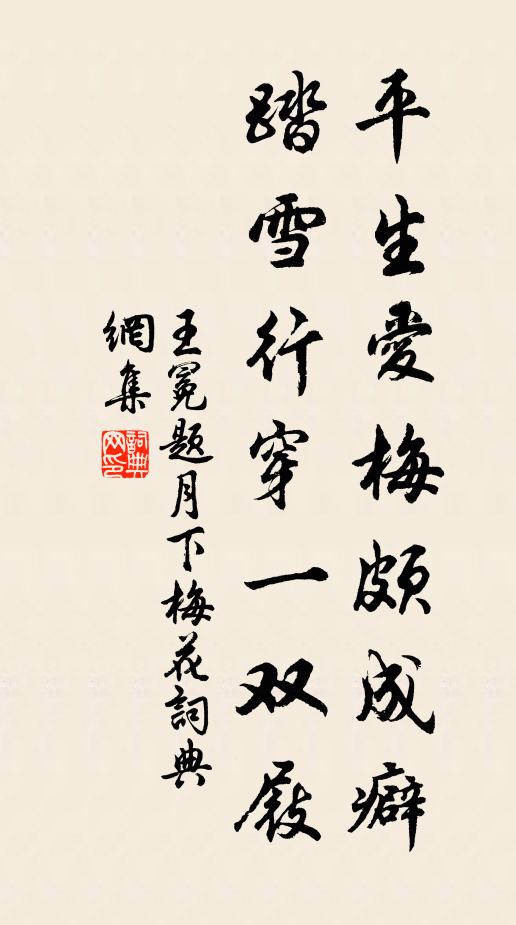 平生愛梅頗成癖
踏雪行穿一双屐
王冕题月下梅花詞典
網集
詞典網印